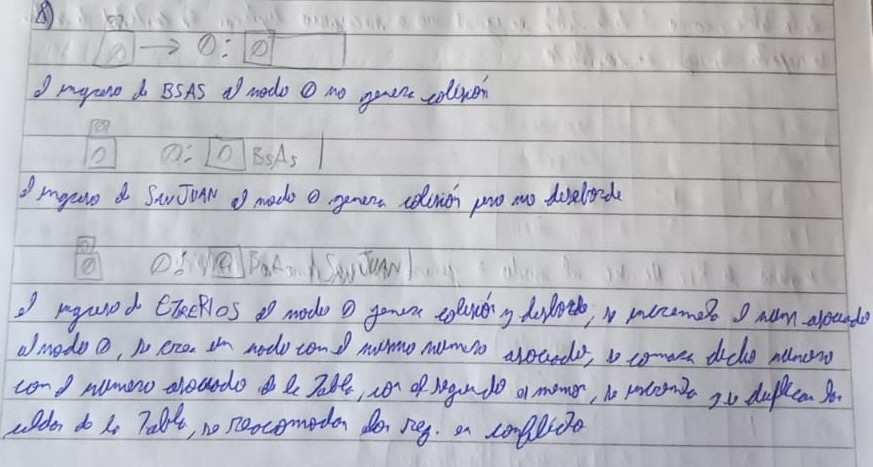 8)
0 → 0: 0
El ingreso de BSAS al nodo 0 no genera colisión
0 0: 0 BsAs
El ingreso de SAN JUAN al nodo 0 genera colisión pero no desborde
0 0: 0 SAN JUAN
el ingreso de al nodo 0 genera colisión y desborde, se incrementa el num asociado
al nodo 0, se crea un nodo con el mismo numero asociado, se compara dicho numero
con el numero asociado de la Tabla, con el segundo es menor, se incrementa y se duplican las
celdas de la Tabla, se reacomodan los reg. en conflicto